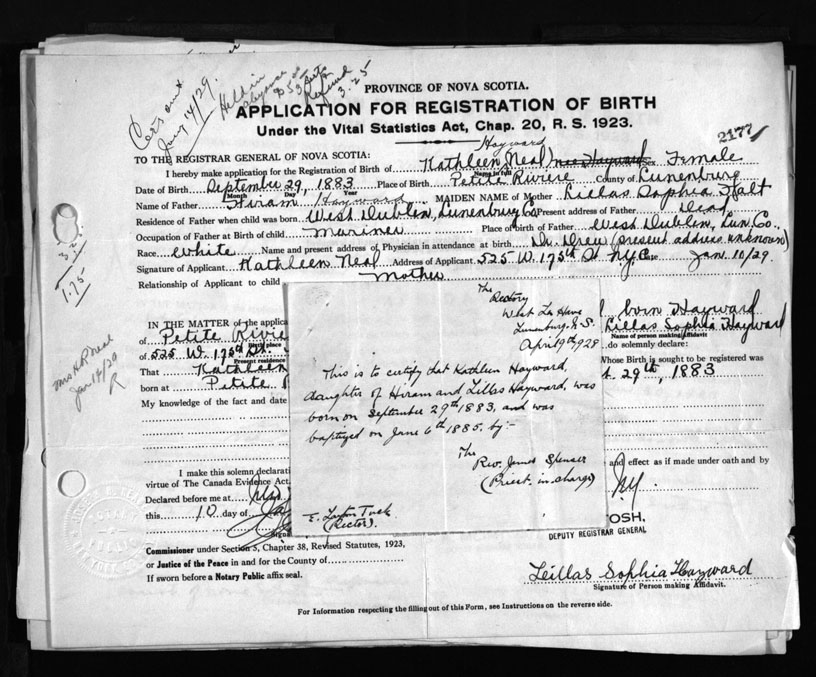 Cert sent
Jany 14/29.
Refund
3.25
PROVINCE OF NOVA SCOTIA.
APPLICATION FOR REGISTRATION OF BIRTH
Under the Vital Statistics Act, Chap. 20, R. S. 1923.
2177
Hayward
TO THE REGISTRAR GENERAL OF NOVA SCOTIA:
I hereby make application for the Registration of Birth of Kathleen (Neal) nee Hayward Sex Female
Name in full
Date of Birth September 29, 1883 Place of Birth Petite Riviere County of Lunenburg
Month Day Year
Name of Father Hiram Hayward MAIDEN NAME of Mother Lillas Sophia
Residence of Father when child was born West Dublin, Lunenburg Co. Present address of Father Dead
Occupation of Father at Birth of child Mariner Place of birth of Father West Dublin, Lun Co.,
Race White Name and present address of Physician in attendance at birth Dr. Drew (present address unknown)
Signature of Applicant Kathleen Neal Address of Applicant 525 W. 175th St N.Y.C. Date Jan. 10/29.
Relationship of Applicant to child Mother
3.25
1.75
Mrs H R Neal
Jan 14/29
R
IN THE MATTER of the applica
born Hayward
of Petite Rivie
Lillas Sophia Hayward
Name of person making Affidavit
of 525 W. 175th
do solemnly declare:
Present residence
That Kathleen
Whose Birth is sought to be registered was
born at Petite
29th, 1883
My knowledge of the fact and date
The
Rectory
West La Have
Lunenburg. N.S.
April 9th 1928
This is to certify that Kathleen Hayward,
daughter of Hiram and Lillas Hayward, was
born on September 29th 1883, and was
baptized on June 6th 1885. by:-
The
Rev. James Spencer
(Priest in charge)
E. Laxton Tuck
(Rector).
I make this solemn declarati
and effect as if made under oath and by
virtue of The Canada Evidence Act.
Declared before me at
N.Y.
this 10 day of
OSH,
DEPUTY REGISTRAR GENERAL
Commissioner under Section 5, Chapter 38, Revised Statutes, 1923,
or Justice of the Peace in and for the County of
If sworn before a Notary Public affix seal.
Leillas Sophia Hayward
Signature of Person making Affidavit.
For Information respecting the filling out of this Form, see Instructions on the reverse side.